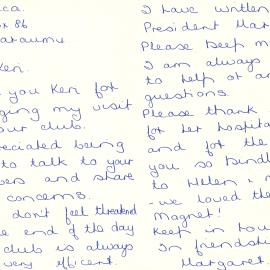 ca.
x 86
araumu
Ken.
you Ken for
ging my visit
our club.
reciated being
to talk to your
bers and share
concerns.
don't feel threatened
e end of the day
club is always
very efficent.
I have written
President Mar
Please keep m
I am always
to help or an
questions.
Please thank
for her hospita
and for the
you so kindl
to Helen
- we loved the
Magnet!
Keep in tou
In friendsh
Margaret.